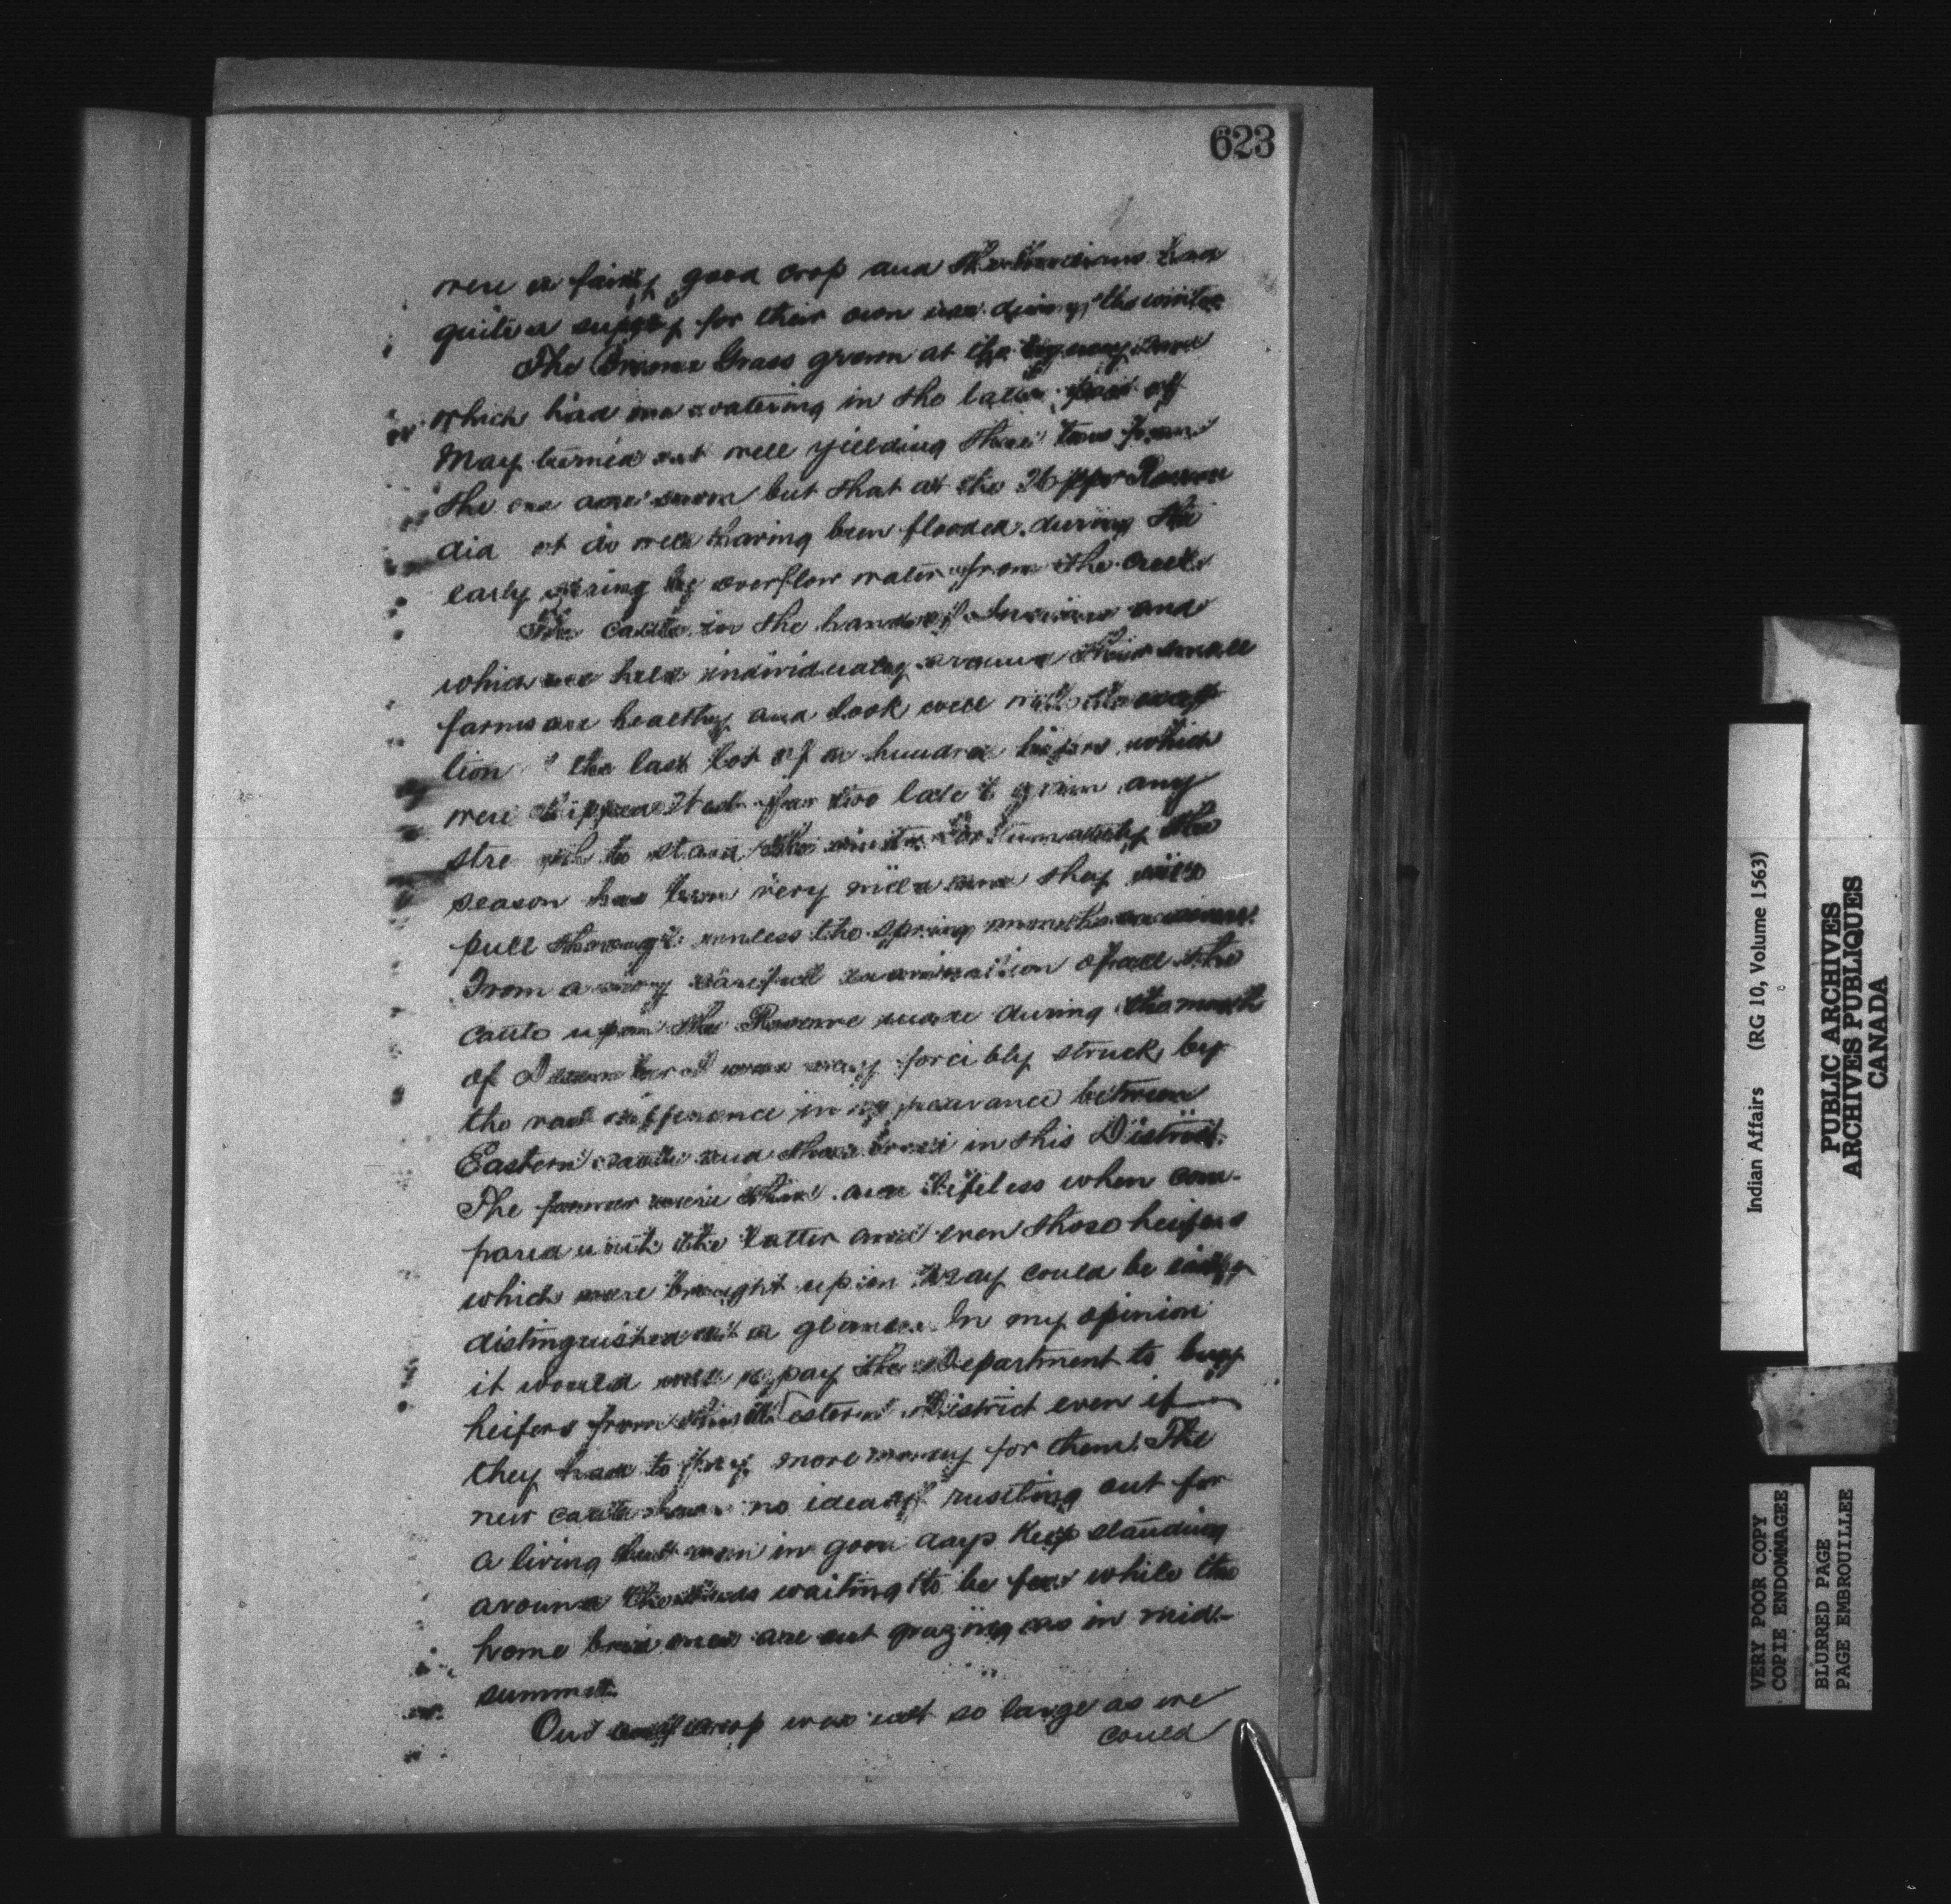 623
were a fairly good crop and the Indians had
quite a supply for their own use during the winter
The Brome Grass grown at the Agency and
which had one watering in the latter part of
May turned out well yielding three tons from
the one acre sown but that at the Upper Reserve
did not do well having been flooded during the
early spring by overflow water from the creek
The cattle in the hands of Indians and
which are held individualy around their small
farms are healthy and look well with the excep
tion of the last lot of a hundred heifers which
were shipped far too late to gain any
strength to stand the winter fortunately the
season has been very mild and they will
pull through unless the spring months are
From a very careful examination of all the
cattle upon the Reserve made during the month
of December I was very forcibly struck by
the vast difference in appearance between
Eastern cattle and those bred in this District.
The former were thin and lifeless when com-
pared with the latter and even those heifers
which were brought up in May could be easily
distinguished at a glance. In my opinion
it would well repay the Department to buy
heifers from this Western District even if
they had to pay more money for them. The
new cattle have no idea of rustling out for
a living but even in good days keep standing
around the sheds waiting to be fed while the
home bred ones are out grazing as in mid-
summer.
Our calf crop was not so large as we
could
Indian Affairs (RG 10, Volume 1563)
PUBLIC ARCHIVES
ARCHIVES PUBLIQUES
CANADA
VERY POOR COPY
COPIE ENDOMMAGEE
BLURRED PAGE
PAGE EMBROUILLEE